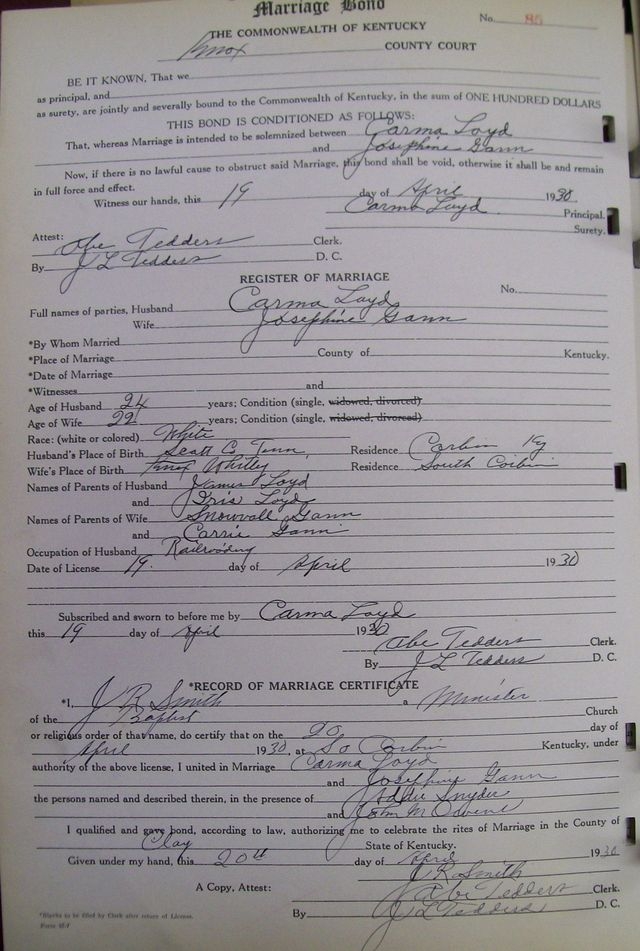 Marriage Bond
No. 85
THE COMMONWEALTH OF KENTUCKY
Knox COUNTY COURT
BE IT KNOWN, That we
as principal, and
as surety, are jointly and severally bound to the Commonwealth of Kentucky, in the sum of ONE HUNDRED DOLLARS
THIS BOND IS CONDITIONED AS FOLLOWS:
That, whereas Marriage is intended to be solemnized between Carma Loyd
and Josephine Gann
Now, if there is no lawful cause to obstruct said Marriage, this bond shall be void, otherwise it shall be and remain
in full force and effect.
Witness our hands, this 19 day of April 1930
Carma Loyd Principal.
Surety.
Attest:
Abe Tedders Clerk.
By J L Tedders D. C.
REGISTER OF MARRIAGE
No.
Full names of parties, Husband Carma Loyd
Wife Josephine Gann
*By Whom Married
*Place of Marriage County of Kentucky.
*Date of Marriage
*Witnesses and
Age of Husband 24 years; Condition (single, widowed, divorced)
Age of Wife 22 years; Condition (single, widowed, divorced)
Race: (white or colored) White
Husband's Place of Birth Scott Co Tenn, Residence Corbin Ky
Wife's Place of Birth Whitley Residence South Corbin
Names of Parents of Husband James Loyd
and Loyd
Names of Parents of Wife Snowvall Gann
and Carrie Gann
Occupation of Husband Railroading
Date of License 19. day of April 1930
Subscribed and sworn to before me by Carma Loyd
this 19 day of April 1930
Abe Tedders Clerk.
By J L Tedders D. C.
*RECORD OF MARRIAGE CERTIFICATE
*I, J R Smith a Minister
of the Baptist Church
or religious order of that name, do certify that on the 20 day of
April 1930, at So Corbin Kentucky, under
authority of the above license, I united in Marriage Carma Loyd
and Josephine Gann
the persons named and described therein, in the presence of Addie Snyder
and John M
I qualified and gave bond, according to law, authorizing me to celebrate the rites of Marriage in the County of
Clay State of Kentucky.
Given under my hand, this 20th day of April 1930
J R Smith
A Copy, Attest: Abe Tedders Clerk.
By J L Tedders D. C.
*Blanks to be filed by Clerk after return of License.